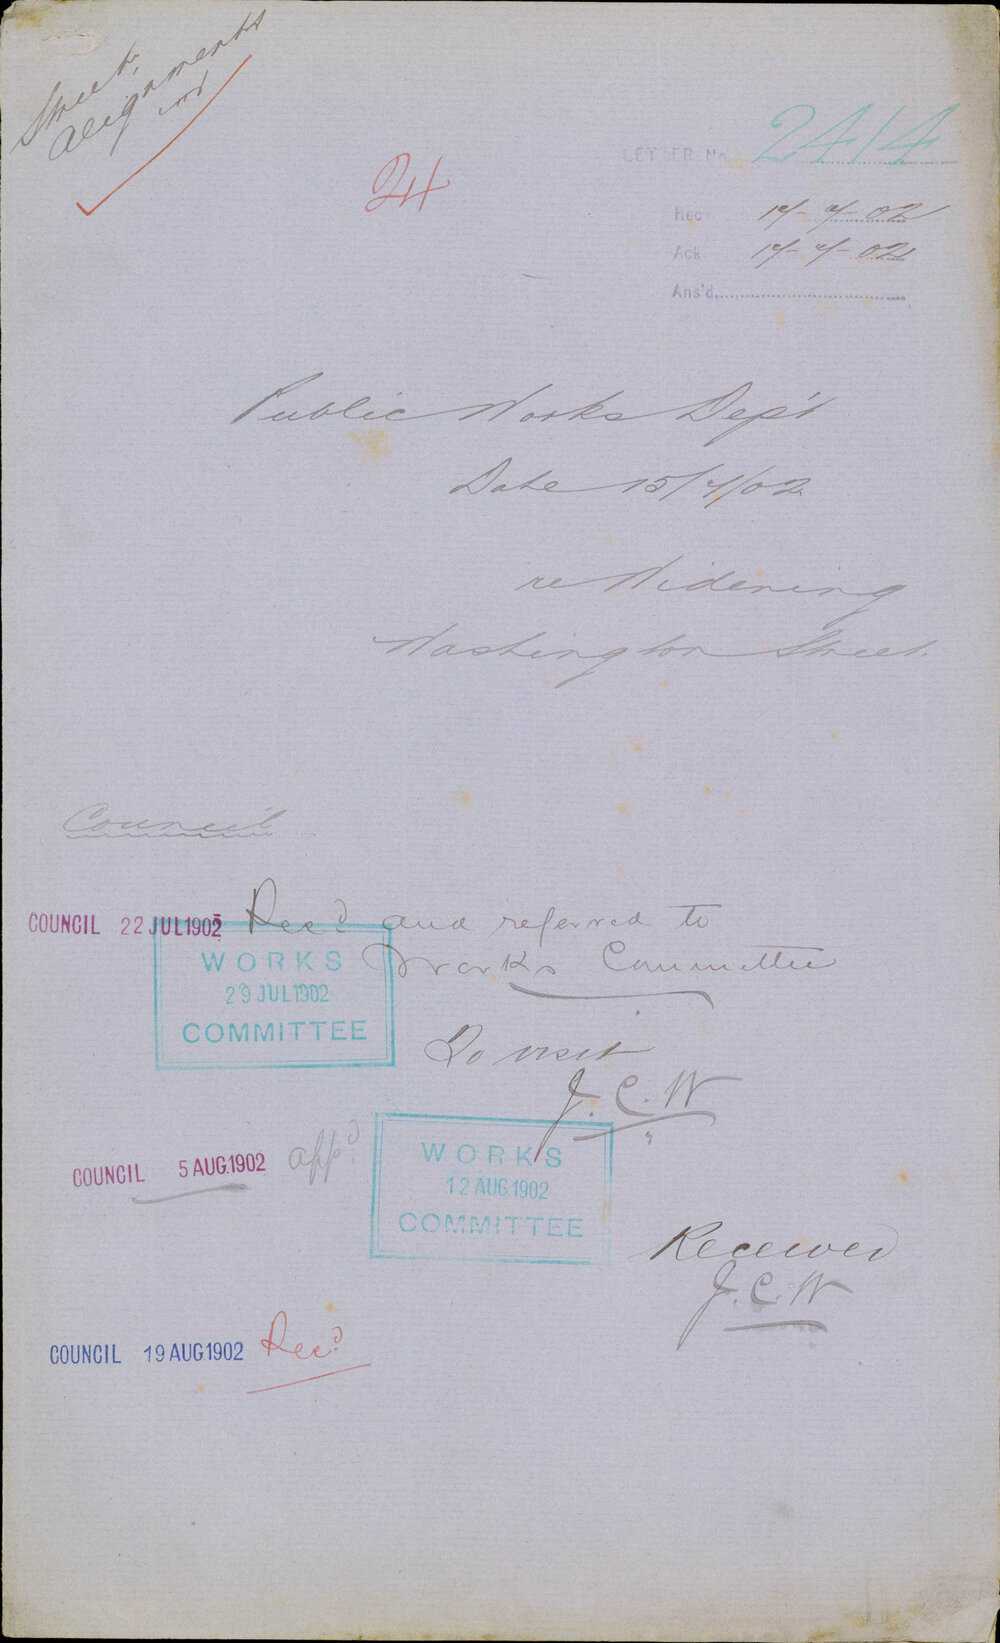 Street
alignments
LETTER No. 2414
24
Rec
Ack.
Ans'd.
Public Works Dep't
Date 15/7/02
re Widening
Washington Street.
Council
COUNCIL 22 JUL 1902 Rec'd and referred to
Works Committee
WORKS
29 JUL 1902
COMMITTEE
To visit
J. C. W
COUNCIL 5 AUG. 1902 app'd
WORKS
12 AUG. 1902
COMMITTEE
Received
J. C. W
COUNCIL 19 AUG. 1902 Rec'd